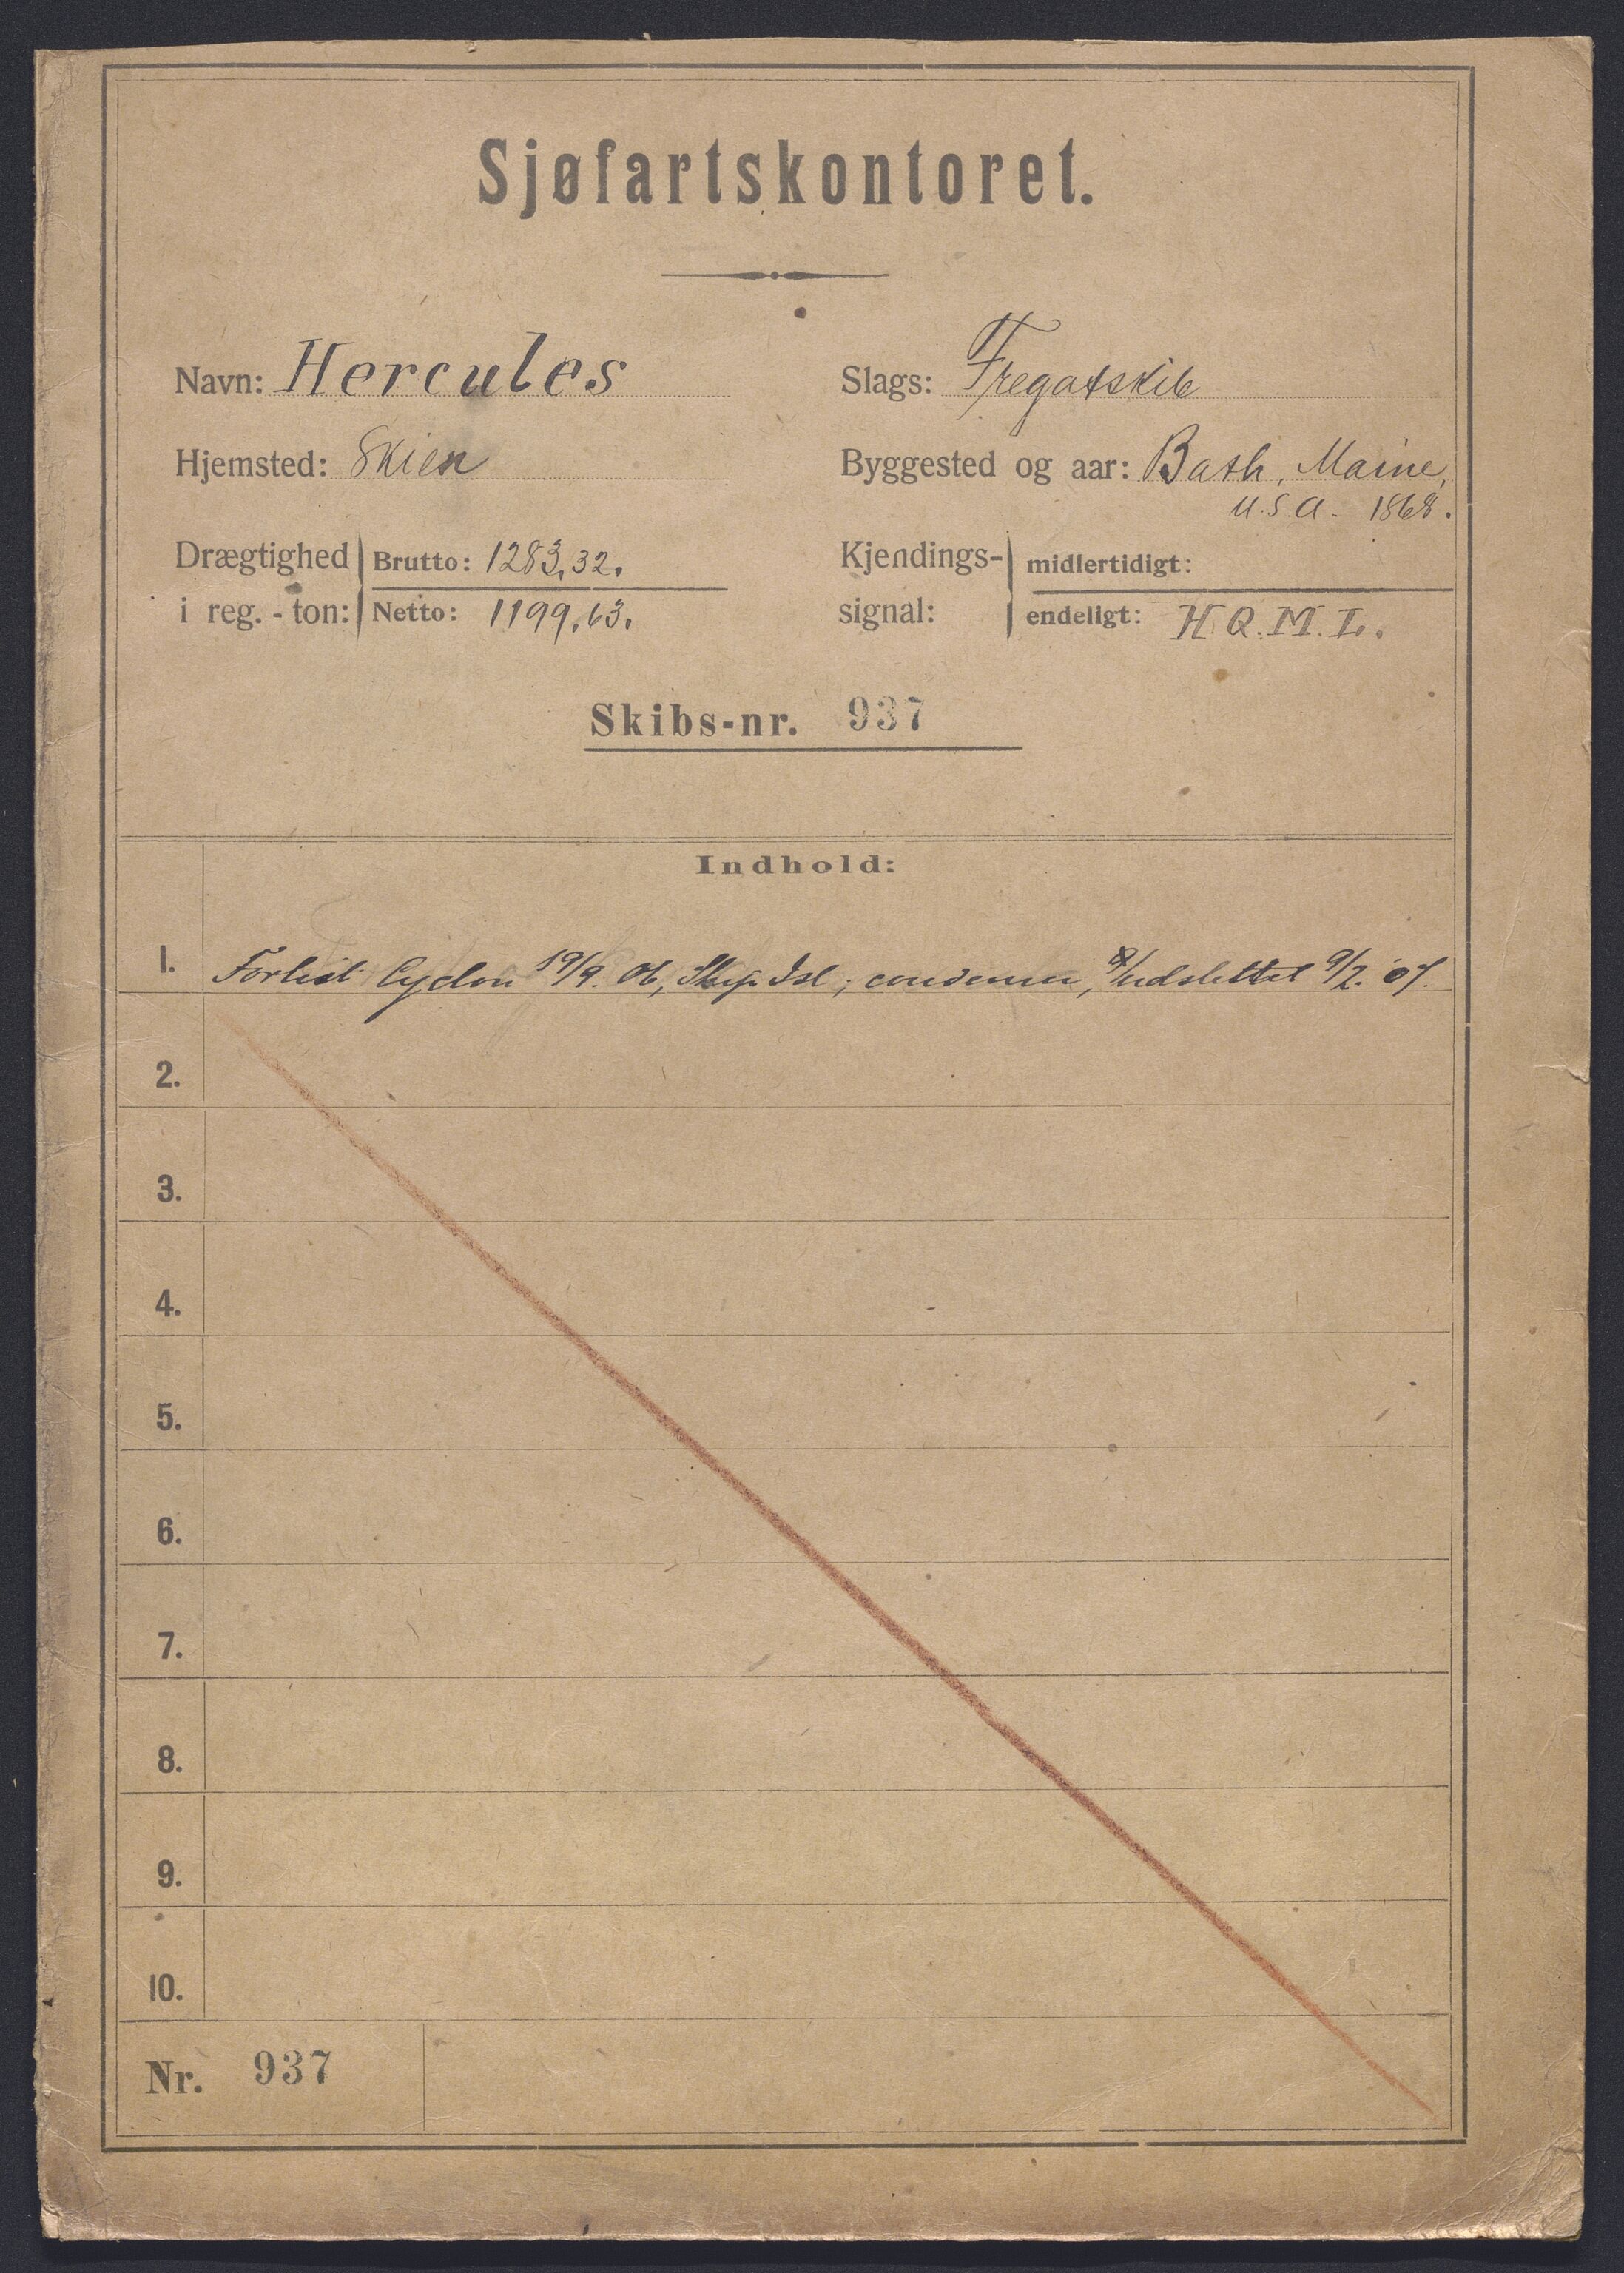 Sjøfartskontoret.
Navn: Hercules
Slags: Fregatskib
Hjemsted: Skien
Byggested og aar: Bath, Maine,
U.S.A. 1868.
Drægtighed i reg.-ton: Brutto: 1283,32.
Netto: 1199,63.
Kjendings-signal: midlertidigt:
endeligt: H.Q.M.L.
Skibs-nr. 937
Indhold:
1. Forlist Cyclon 19/9. 06, Ship Isl; udslettet 9/2. 07.
2.
3.
4.
5.
6.
7.
8.
9.
10.
Nr. 937